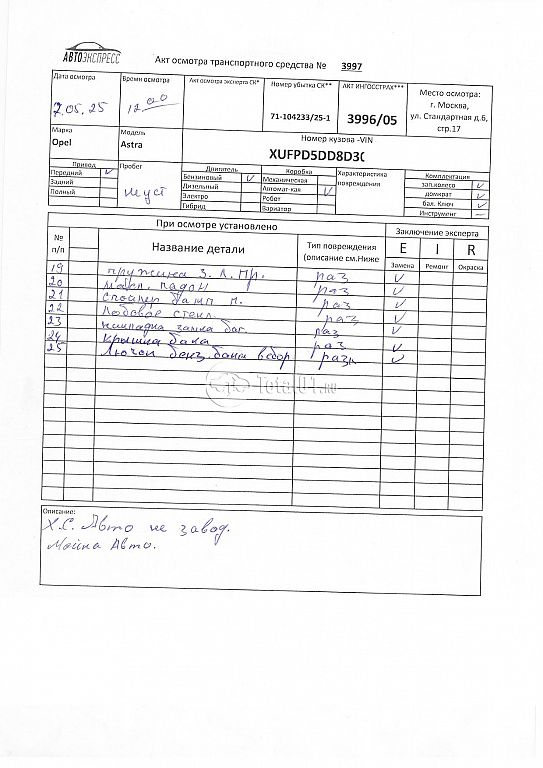 АВТОЭКСПРЕСС
Акт осмотра транспортного средства № 3997
Дата осмотра Время осмотра Акт осмотра эксперта СК* Номер убытка СК** АКТ ИНГОССТРАХ*** Место осмотра:
7.05.25 12.00 71-104233/25-1 3996/05 г. Москва, ул. Стандартная д.6, стр.17
Марка Модель Номер кузова -VIN
Opel Astra XUFPD5DD8D3C
Привод Пробег Двигатель Коробка Характеристика повреждения Комплектация
Передний ✓ Бензиновый ✓ Механическая зап.колесо ✓
Задний Дизельный Автомат-кая ✓ домкрат ✓
Полный Электро Робот бал. Ключ ✓
Гибрид Вариатор Инструмент —
При осмотре установлено Заключение эксперта
№ п/п Название детали Тип повреждения (описание см.Ниже E I R
Замена Ремонт Окраска
19 пружина З. Л. Пр. раз ✓
20 раз ✓
21 спойлер бамп п. раз ✓
22 Лобовое стекл. раз ✓
23 накладка замка баг. раз ✓
24 крышка бака раз ✓
25 Лючок бенз. бака в сбор ✓
Total01.ru
Описание:
Х.С. Авто не завод.
Мойка Авто.